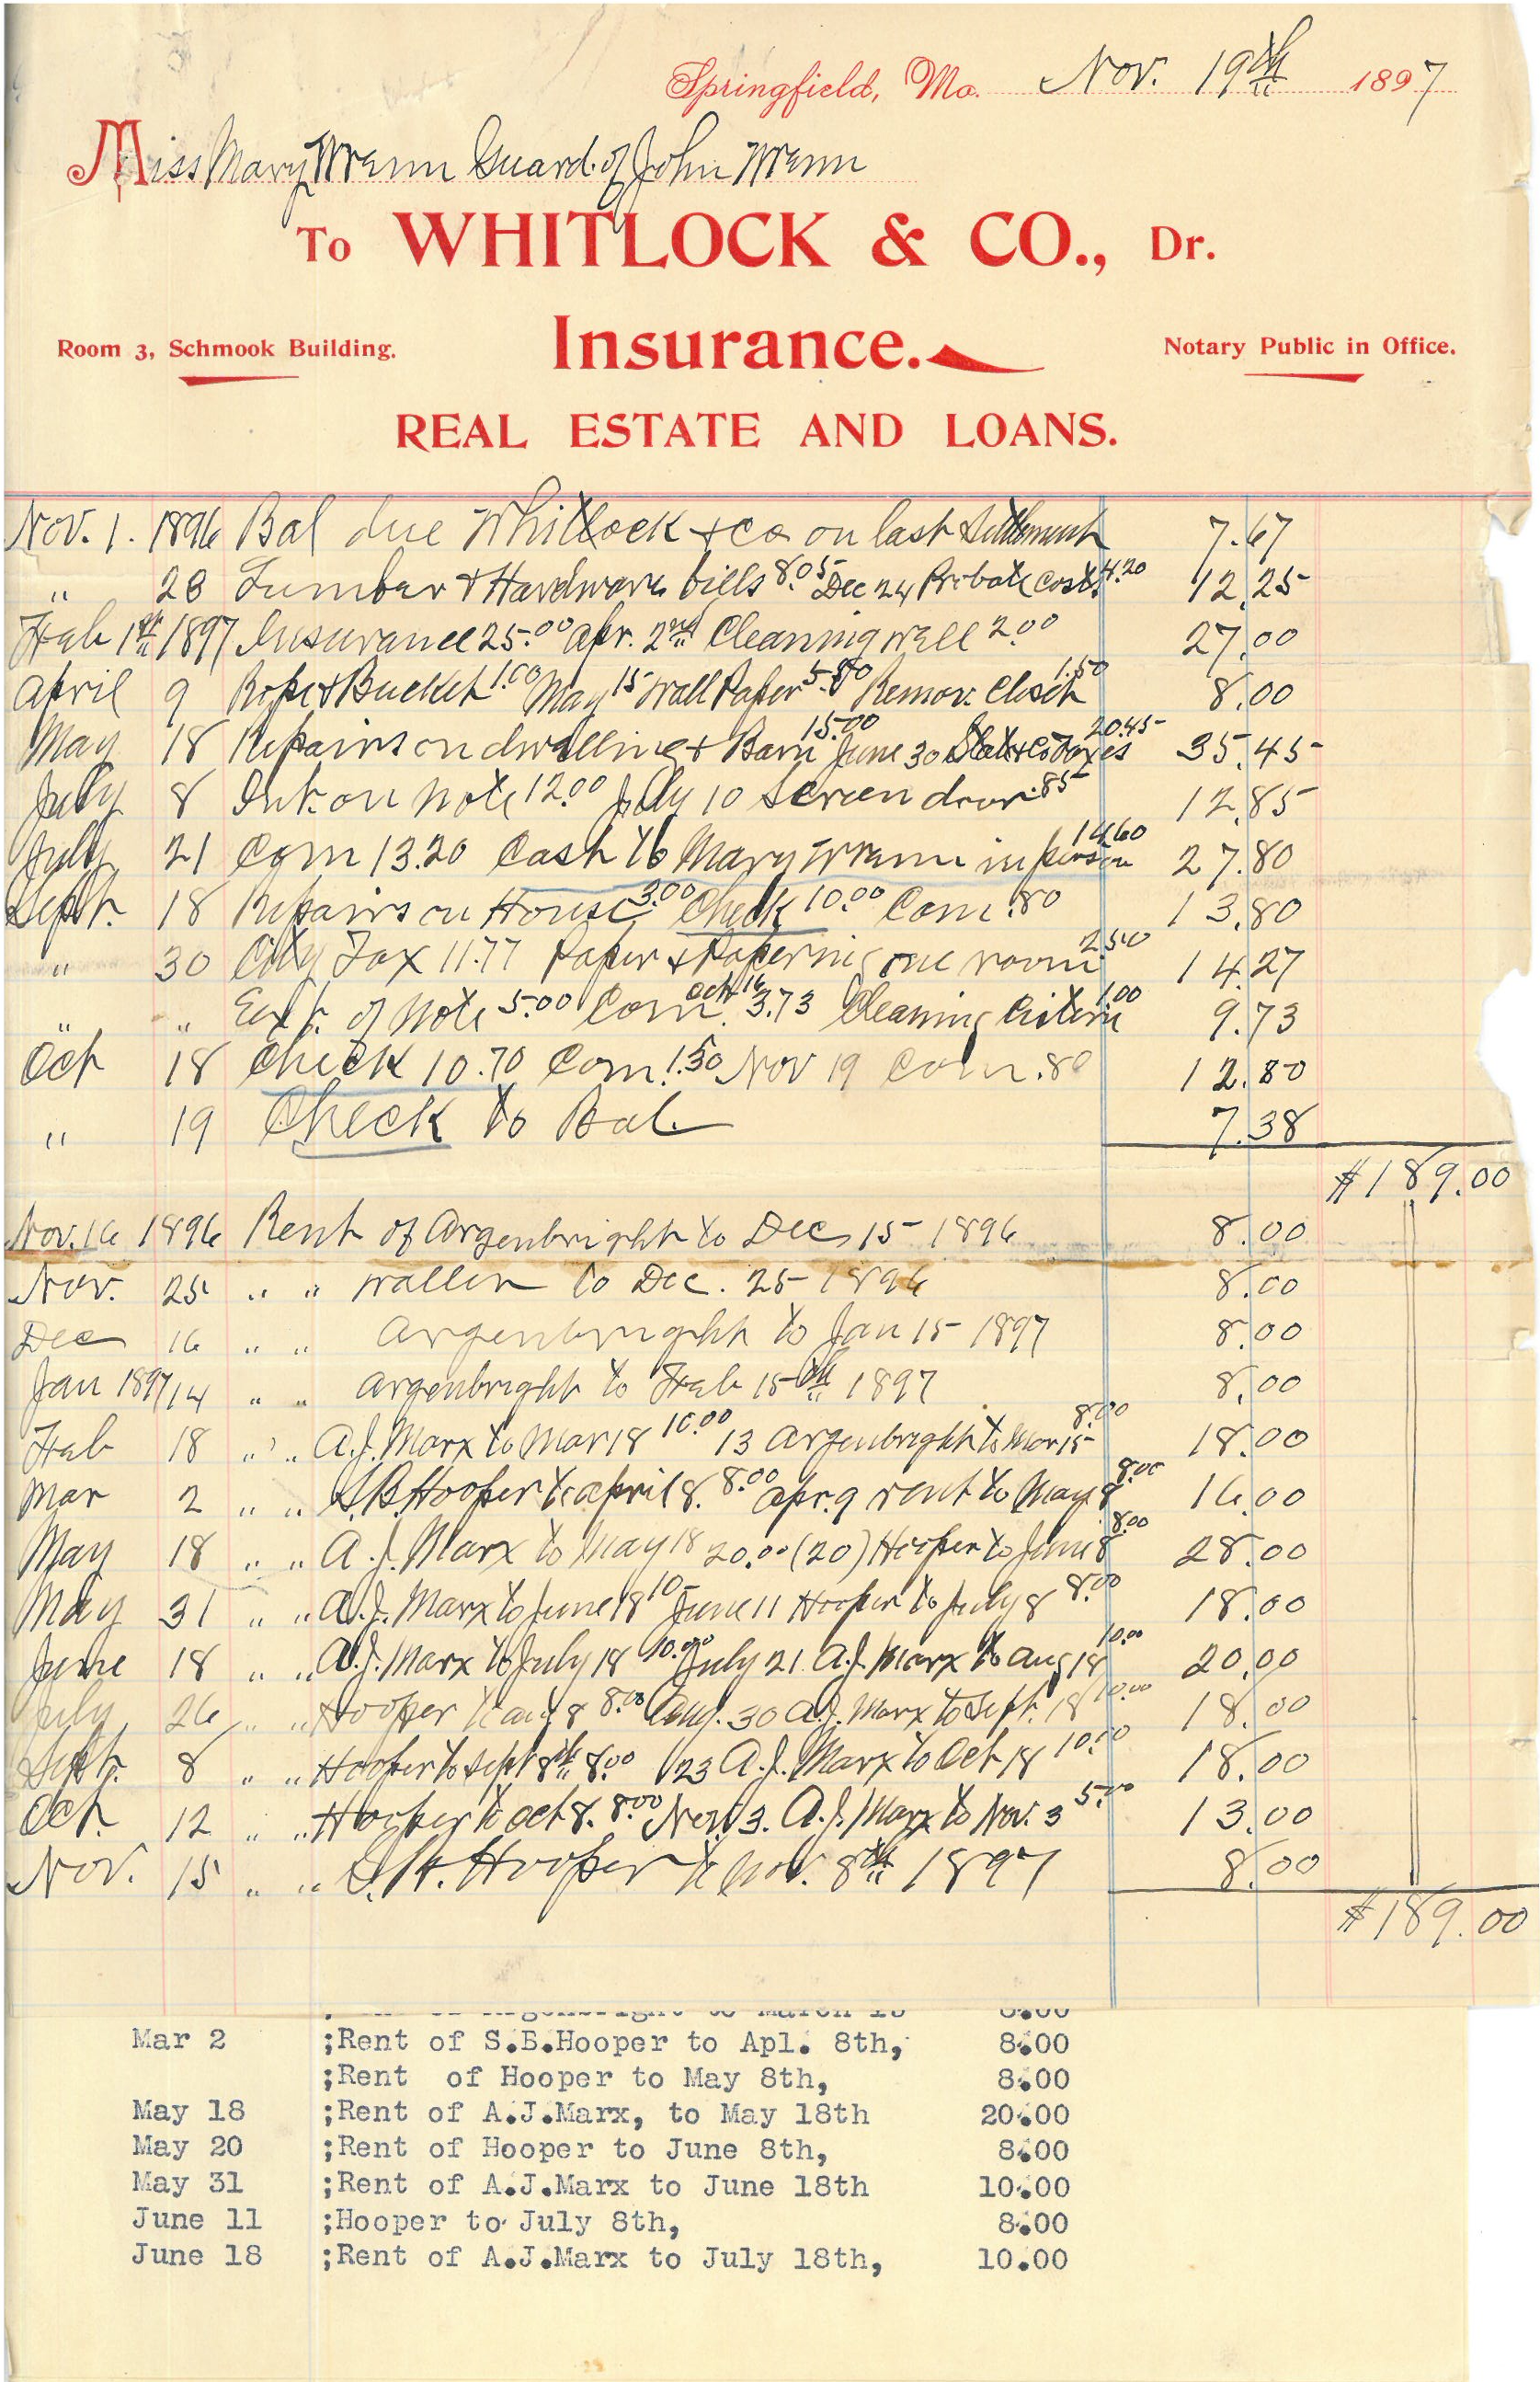 Springfield, Mo. Nov. 19th 1897
Miss Mary Wrenn Guard. of John Wrenn
To WHITLOCK & CO., Dr.
Room 3, Schmook Building. Insurance. Notary Public in Office.
REAL ESTATE AND LOANS.
Nov. 1. 1896 Bal due Whitlock & Co on last Settlement 7.67
" 28 Lumber & Hardware bills 8.05 Dec 24 Probate Costs 4.20 12.25
Feb 1st 1897 Insurance 25.00 Apr. 2nd Cleaning well 2.00 27.00
April 9 Rope & Bucket 1.00 May 15 Wall Paper 5.50 Remov. Closet 1.50 8.00
May 18 Repairs on dwelling & Barn 15.00 June 30 State & Co Taxes 20.45 35.45
July 8 Int. on Note 12.00 July 10 Screen door .85 12.85
July 21 Com 13.20 Cash to Mary Wrenn in person 14.60 27.80
Sept. 18 Repairs on House 3.00 Check 10.00 Com .80 13.80
" 30 City Tax 11.77 Paper & Papering one room 2.50 14.27
" " Ext. of Note 5.00 Com. Oct 16 3.73 Cleaning Cistern 1.00 9.73
Oct 18 Check 10.70 Com. 1.30 Nov 19 Com. .80 12.80
" 19 Check to Bal. 7.38
$189.00
Nov. 16 1896 Rent of Argenbright to Dec 15 1896 8.00
Nov. 25 " " Wallen to Dec. 25 1896 8.00
Dec 16 " " Argenbright to Jan 15 1897 8.00
Jan 1897 14 " " Argenbright to Feb 15th 1897 8.00
Feb 18 " " A.J. Marx to Mar 18 10.00 13 Argenbright to Mar 15 8.00 18.00
Mar 2 " " S.B. Hooper to April 8. 8.00 Apr. 9 rent to May 8 8.00 16.00
May 18 " " A.J. Marx to May 18 20.00 (20) Hooper to June 8 8.00 28.00
May 31 " " A.J. Marx to June 18 10- June 11 Hooper to July 8 8.00 18.00
June 18 " " A.J. Marx to July 18 10.00 July 21 A.J. Marx to Aug 18 10.00 20.00
July 26 " " Hooper to Aug 8 8.00 Aug. 30 A.J. Marx to Sept. 18 10.00 18.00
Sept. 8 " " Hooper to Sept 8th 8.00 23 A.J. Marx to Oct 18 10.00 18.00
Oct. 12 " " Hooper to Oct 8. 8.00 Nov. 3. A.J. Marx to Nov. 3 5.00 13.00
Nov. 15 " " Hooper to Nov. 8th 1897 8.00
$189.00
Mar 2 ;Rent of S.B.Hooper to Apl. 8th, 8.00
;Rent of Hooper to May 8th, 8.00
May 18 ;Rent of A.J.Marx, to May 18th 20.00
May 20 ;Rent of Hooper to June 8th, 8.00
May 31 ;Rent of A.J.Marx to June 18th 10.00
June 11 ;Hooper to July 8th, 8.00
June 18 ;Rent of A.J.Marx to July 18th, 10.00